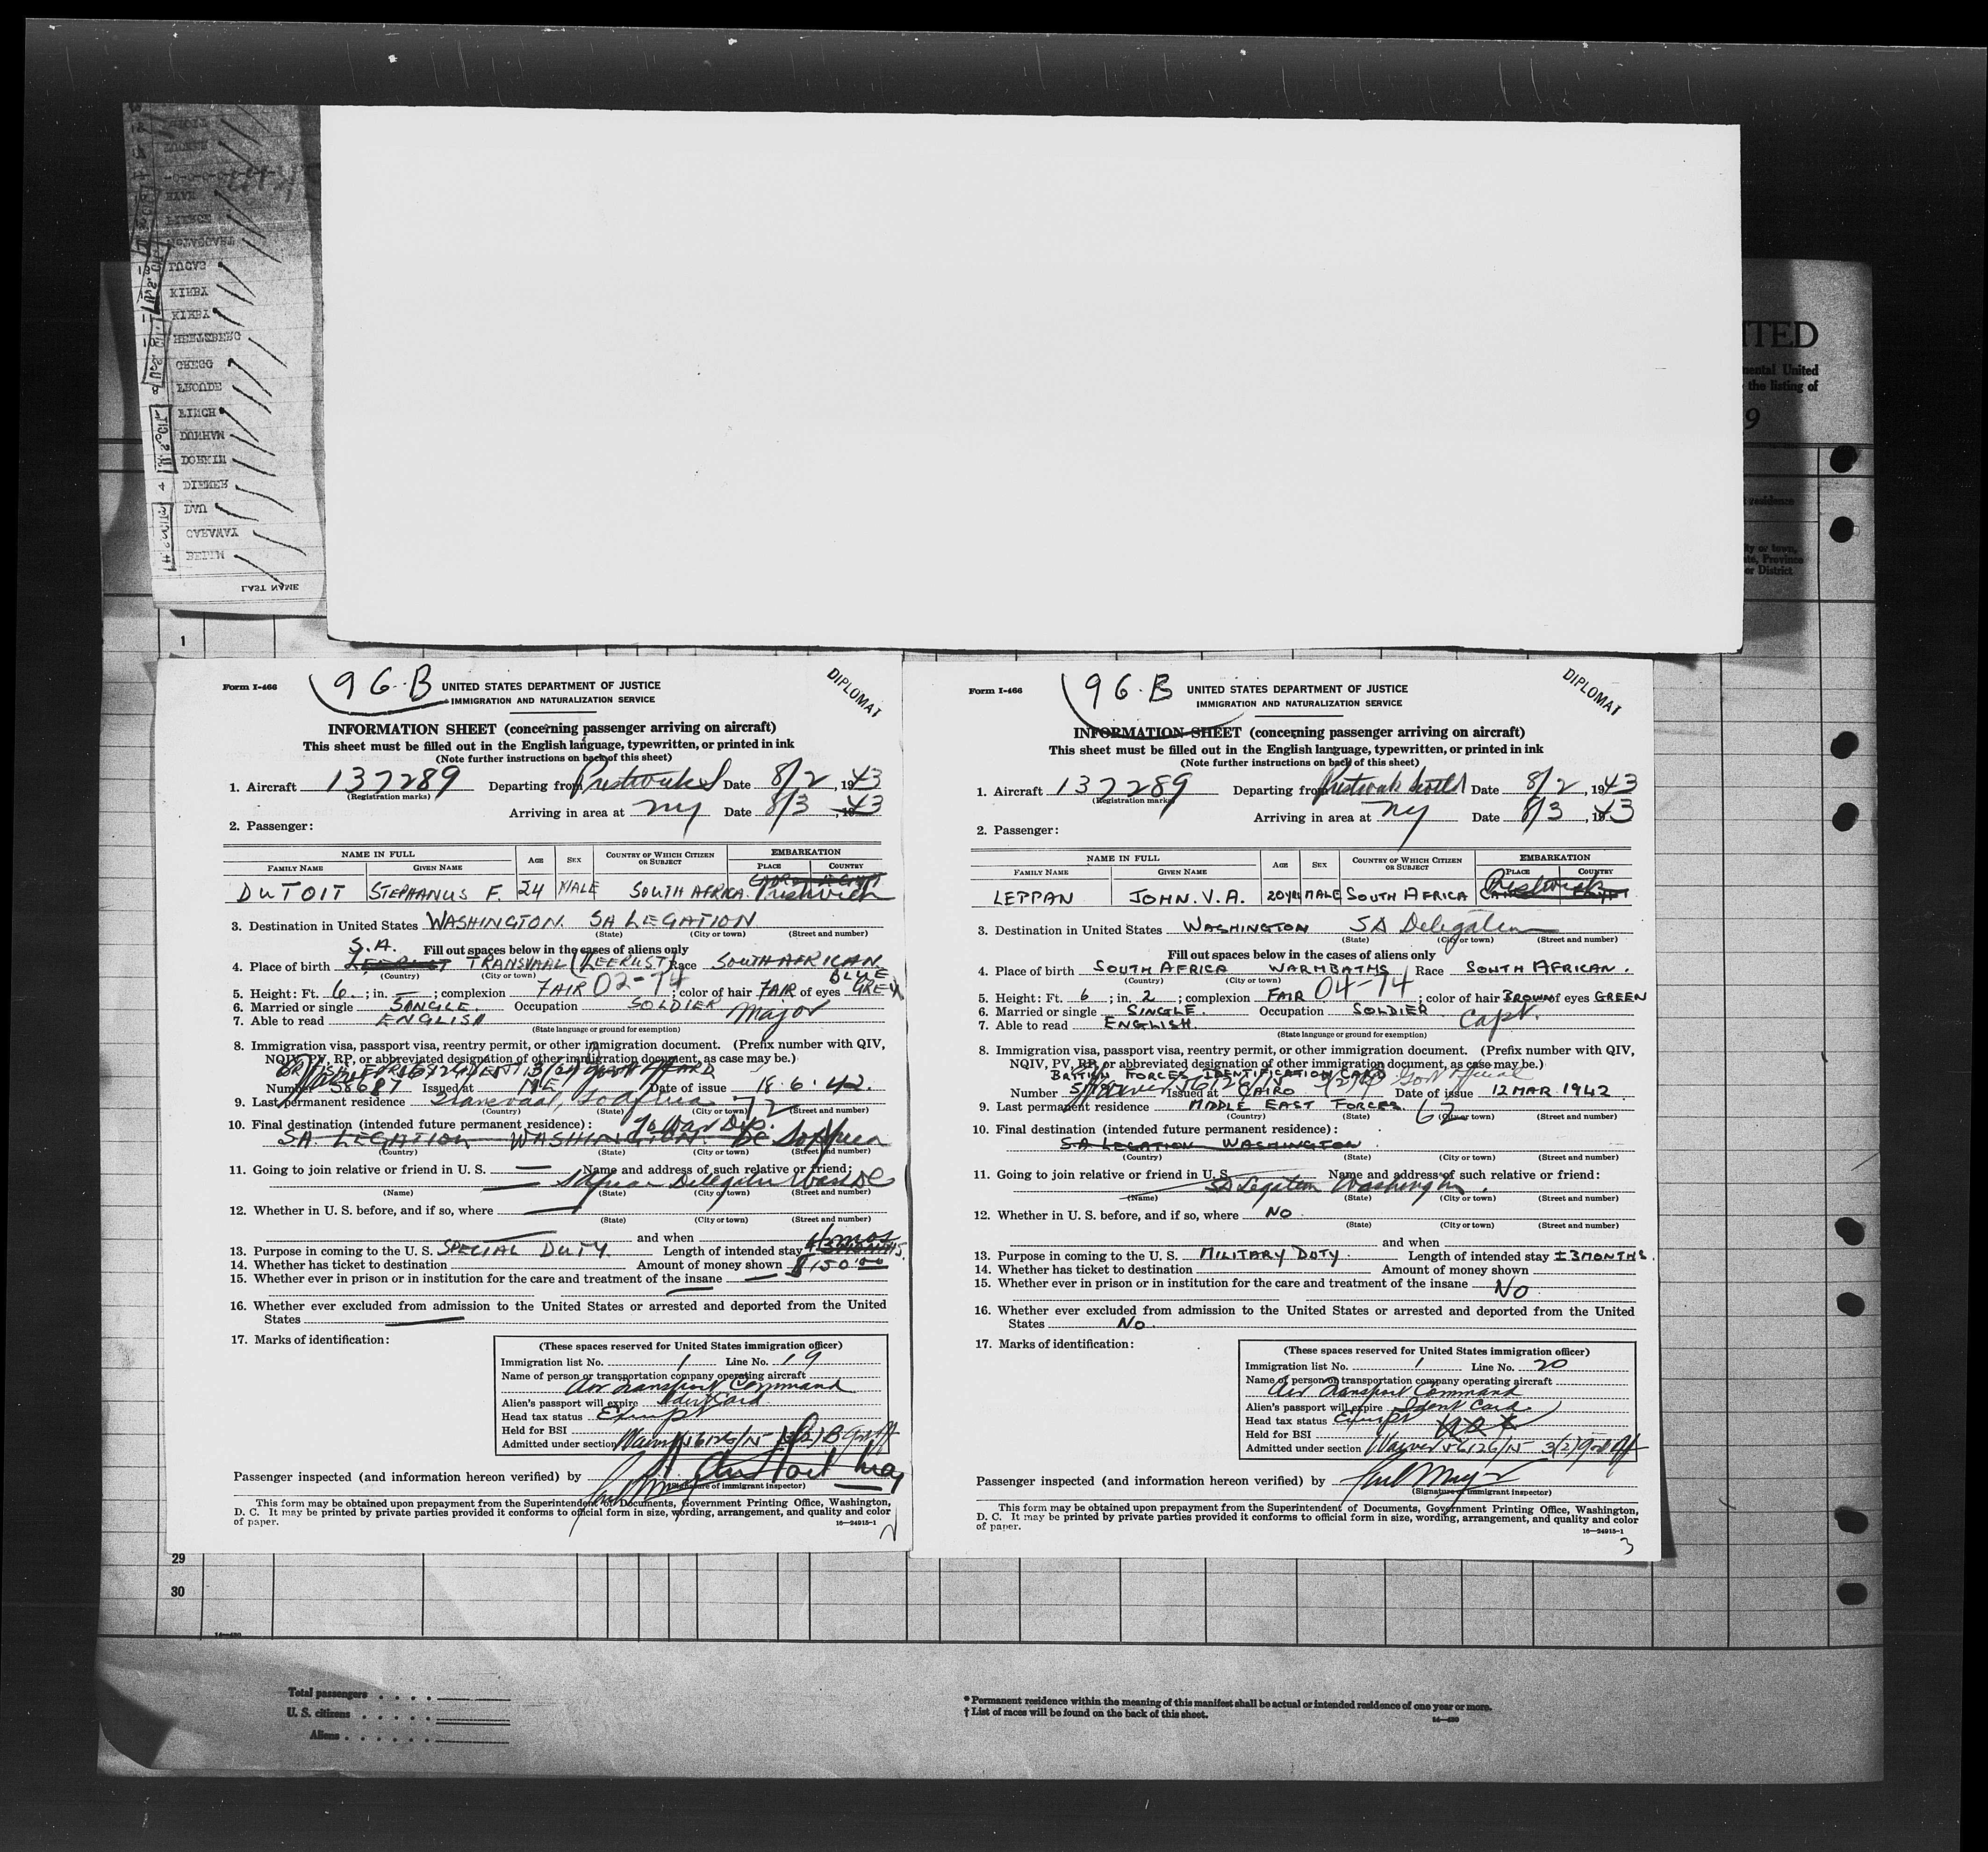 LAST NAME
BERIN
CARAWAY
DAU
DIEMER
DOBKIN
DUNHAM
FINCH
FROUDE
GREGG
HERTZBERG
KIRBY
KIRBY
LUCAS
PIERCE
ITED
mental United
the listing of
9
residence
ity or town,
ate, Province
or District
1
Form I-466
96-B
UNITED STATES DEPARTMENT OF JUSTICE
IMMIGRATION AND NATURALIZATION SERVICE
DIPLOMAT
INFORMATION SHEET (concerning passenger arriving on aircraft)
This sheet must be filled out in the English language, typewritten, or printed in ink
(Note further instructions on back of this sheet)
1. Aircraft 137289 Departing from Prestwick S Date 8/2, 1943
(Registration marks)
Arriving in area at NY Date 8/3, 1943
2. Passenger:
NAME IN FULL AGE SEX COUNTRY OF WHICH CITIZEN OR SUBJECT EMBARKATION
FAMILY NAME GIVEN NAME PLACE COUNTRY
DUTOIT STEPHANUS F. 24 MALE SOUTH AFRICA. CAIRO EGYPT Prestwick
3. Destination in United States WASHINGTON. SA LEGATION
(State) (City or town) (Street and number)
S.A. Fill out spaces below in the cases of aliens only
4. Place of birth ZEERUST TRANSVAAL (ZEERUST) Race SOUTH AFRICAN
(Country) (City or town)
5. Height: Ft. 6; in. —; complexion FAIR 02-74; color of hair FAIR of eyes BLUE GREY
6. Married or single SINGLE. Occupation SOLDIER Major
7. Able to read ENGLISH
(State language or ground for exemption)
8. Immigration visa, passport visa, reentry permit, or other immigration document. (Prefix number with QIV,
NQIV, PV, RP, or abbreviated designation of other immigration document, as case may be.)
Number 58687 Issued at ME Date of issue 18.6.42.
9. Last permanent residence Transvaal, So Africa 72
(Country) (State) (City or town) (Street and number)
10. Final destination (intended future permanent residence):
SA. LEGATION WASHINGTON. DC So Africa
(Country) (State) (City or town) (Street and number)
11. Going to join relative or friend in U. S. — Name and address of such relative or friend:
Delegation Wash DC
(Name) (State) (City or town) (Street and number)
12. Whether in U. S. before, and if so, where —
(State) (City or town) (Street and number)
and when
13. Purpose in coming to the U. S. SPECIAL DUTY Length of intended stay ±3 MONTHS.
14. Whether has ticket to destination Amount of money shown $150.00
15. Whether ever in prison or in institution for the care and treatment of the insane —
16. Whether ever excluded from admission to the United States or arrested and deported from the United
States —
17. Marks of identification:
(These spaces reserved for United States immigration officer)
Immigration list No. 1 Line No. 19
Name of person or transportation company operating aircraft
Air Transport Command
Alien's passport will expire Ident Card
Head tax status Exempt
Held for BSI
Admitted under section Waiver 56126/15
Passenger inspected (and information hereon verified) by
(Signature of immigrant inspector)
This form may be obtained upon prepayment from the Superintendent of Documents, Government Printing Office, Washington,
D. C. It may be printed by private parties provided it conforms to official form in size, wording, arrangement, and quality and color
of paper.
16—24915-1
2
Form I-466
96-B
UNITED STATES DEPARTMENT OF JUSTICE
IMMIGRATION AND NATURALIZATION SERVICE
DIPLOMAT
INFORMATION SHEET (concerning passenger arriving on aircraft)
This sheet must be filled out in the English language, typewritten, or printed in ink
(Note further instructions on back of this sheet)
1. Aircraft 137289 Departing from Prestwick Scotld Date 8/2, 1943
(Registration marks)
Arriving in area at NY Date 8/3, 1943
2. Passenger:
NAME IN FULL AGE SEX COUNTRY OF WHICH CITIZEN OR SUBJECT EMBARKATION
FAMILY NAME GIVEN NAME PLACE COUNTRY
LEPPAN JOHN. V. A. 20 YRS MALE SOUTH AFRICA CAIRO EGYPT Prestwick
3. Destination in United States WASHINGTON SA Delegation
(State) (City or town) (Street and number)
Fill out spaces below in the cases of aliens only
4. Place of birth SOUTH AFRICA WARMBATHS Race SOUTH AFRICAN.
(Country) (City or town)
5. Height: Ft. 6; in. 2; complexion FAIR 04-74; color of hair BROWN of eyes GREEN
6. Married or single SINGLE. Occupation SOLDIER Capt.
7. Able to read ENGLISH.
(State language or ground for exemption)
8. Immigration visa, passport visa, reentry permit, or other immigration document. (Prefix number with QIV,
NQIV, PV, RP, or abbreviated designation of other immigration document, as case may be.)
BRITISH FORCES IDENTIFICATION CARD
Waiver 56126/15 3(2) Gov Official
Number Issued at CAIRO Date of issue 12 MAR. 1942
9. Last permanent residence MIDDLE EAST FORCES. 62
(Country) (State) (City or town) (Street and number)
10. Final destination (intended future permanent residence):
SA LEGATION WASHINGTON
(Country) (State) (City or town) (Street and number)
11. Going to join relative or friend in U. S. Name and address of such relative or friend:
SA Legation Washington.
(Name) (State) (City or town) (Street and number)
12. Whether in U. S. before, and if so, where NO
(State) (City or town) (Street and number)
and when
13. Purpose in coming to the U. S. MILITARY DUTY. Length of intended stay ±3 MONTHS.
14. Whether has ticket to destination Amount of money shown
15. Whether ever in prison or in institution for the care and treatment of the insane No
16. Whether ever excluded from admission to the United States or arrested and deported from the United
States No.
17. Marks of identification:
(These spaces reserved for United States immigration officer)
Immigration list No. 1 Line No. 20
Name of person or transportation company operating aircraft
Air Transport Command
Alien's passport will expire Ident Card.
Head tax status Exempt
Held for BSI
Admitted under section Waiver 56126/15 3(2) Gov Off
Passenger inspected (and information hereon verified) by
(Signature of immigrant inspector)
This form may be obtained upon prepayment from the Superintendent of Documents, Government Printing Office, Washington,
D. C. It may be printed by private parties provided it conforms to official form in size, wording, arrangement, and quality and color
of paper.
16—24915-1
3
29
30
Total passengers
U. S. citizens
Aliens
* Permanent residence within the meaning of this manifest shall be actual or intended residence of one year or more.
† List of races will be found on the back of this sheet.